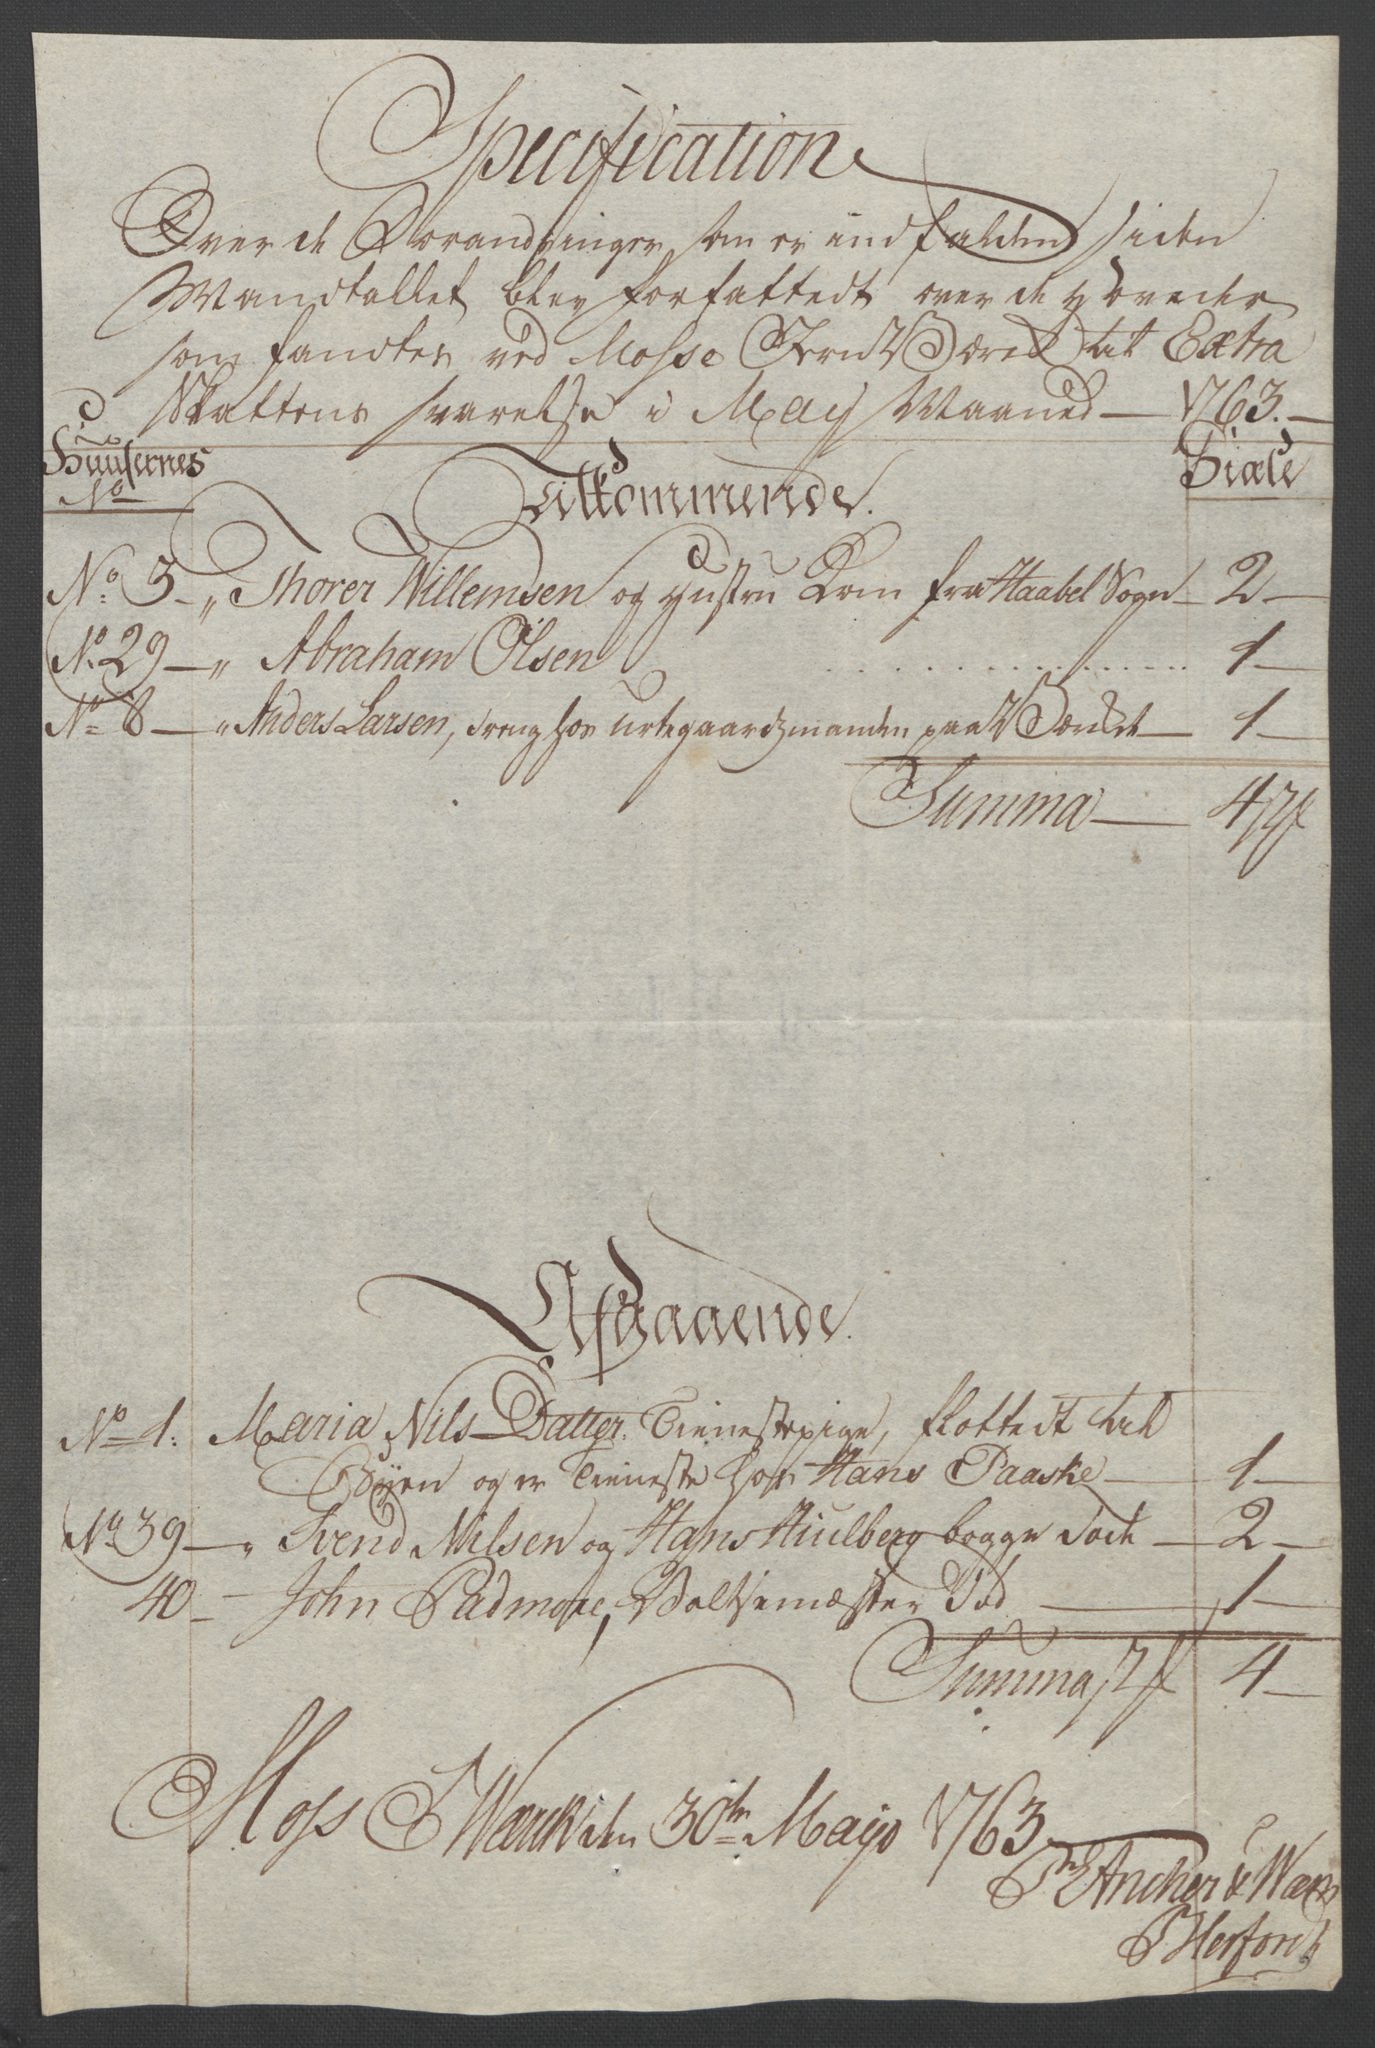 Specification
Over de Forandringer som er indfalden siden
Mandtallet blev forfattedt over de Hoveder
som fandtes ved Mosse Jern Værck til Extra
Skattens svarelse i May Maaned — 1763. —
Huusernes
No
Siæle
Tilkommende.
No. 3 — „ Thorer Willemsen og Hustru kom fra Haabel Sogn — 2 —
No. 29 — „ Abraham Olsen . . . . . . . . . . . . 1 —
No 8 — „ Anders Larsen, dreng hos urtegaardsmanden paa Værcket — 1 —
Summa — 4
Afgaaende.
No 1. Maria Nils Datter Tienestepige, flottedt til
Byen og er Tieneste hos Hans Paaske — 1 —
No. 39 — „ Svend Nilsen og Hans Hiulberg begge død — 2 —
40 — John Padmore, Boltsemæster død — 1 —
Summa 4 —
Moss J Wærck den 30te Mayo 1763
Ancher & Wærn
Herford